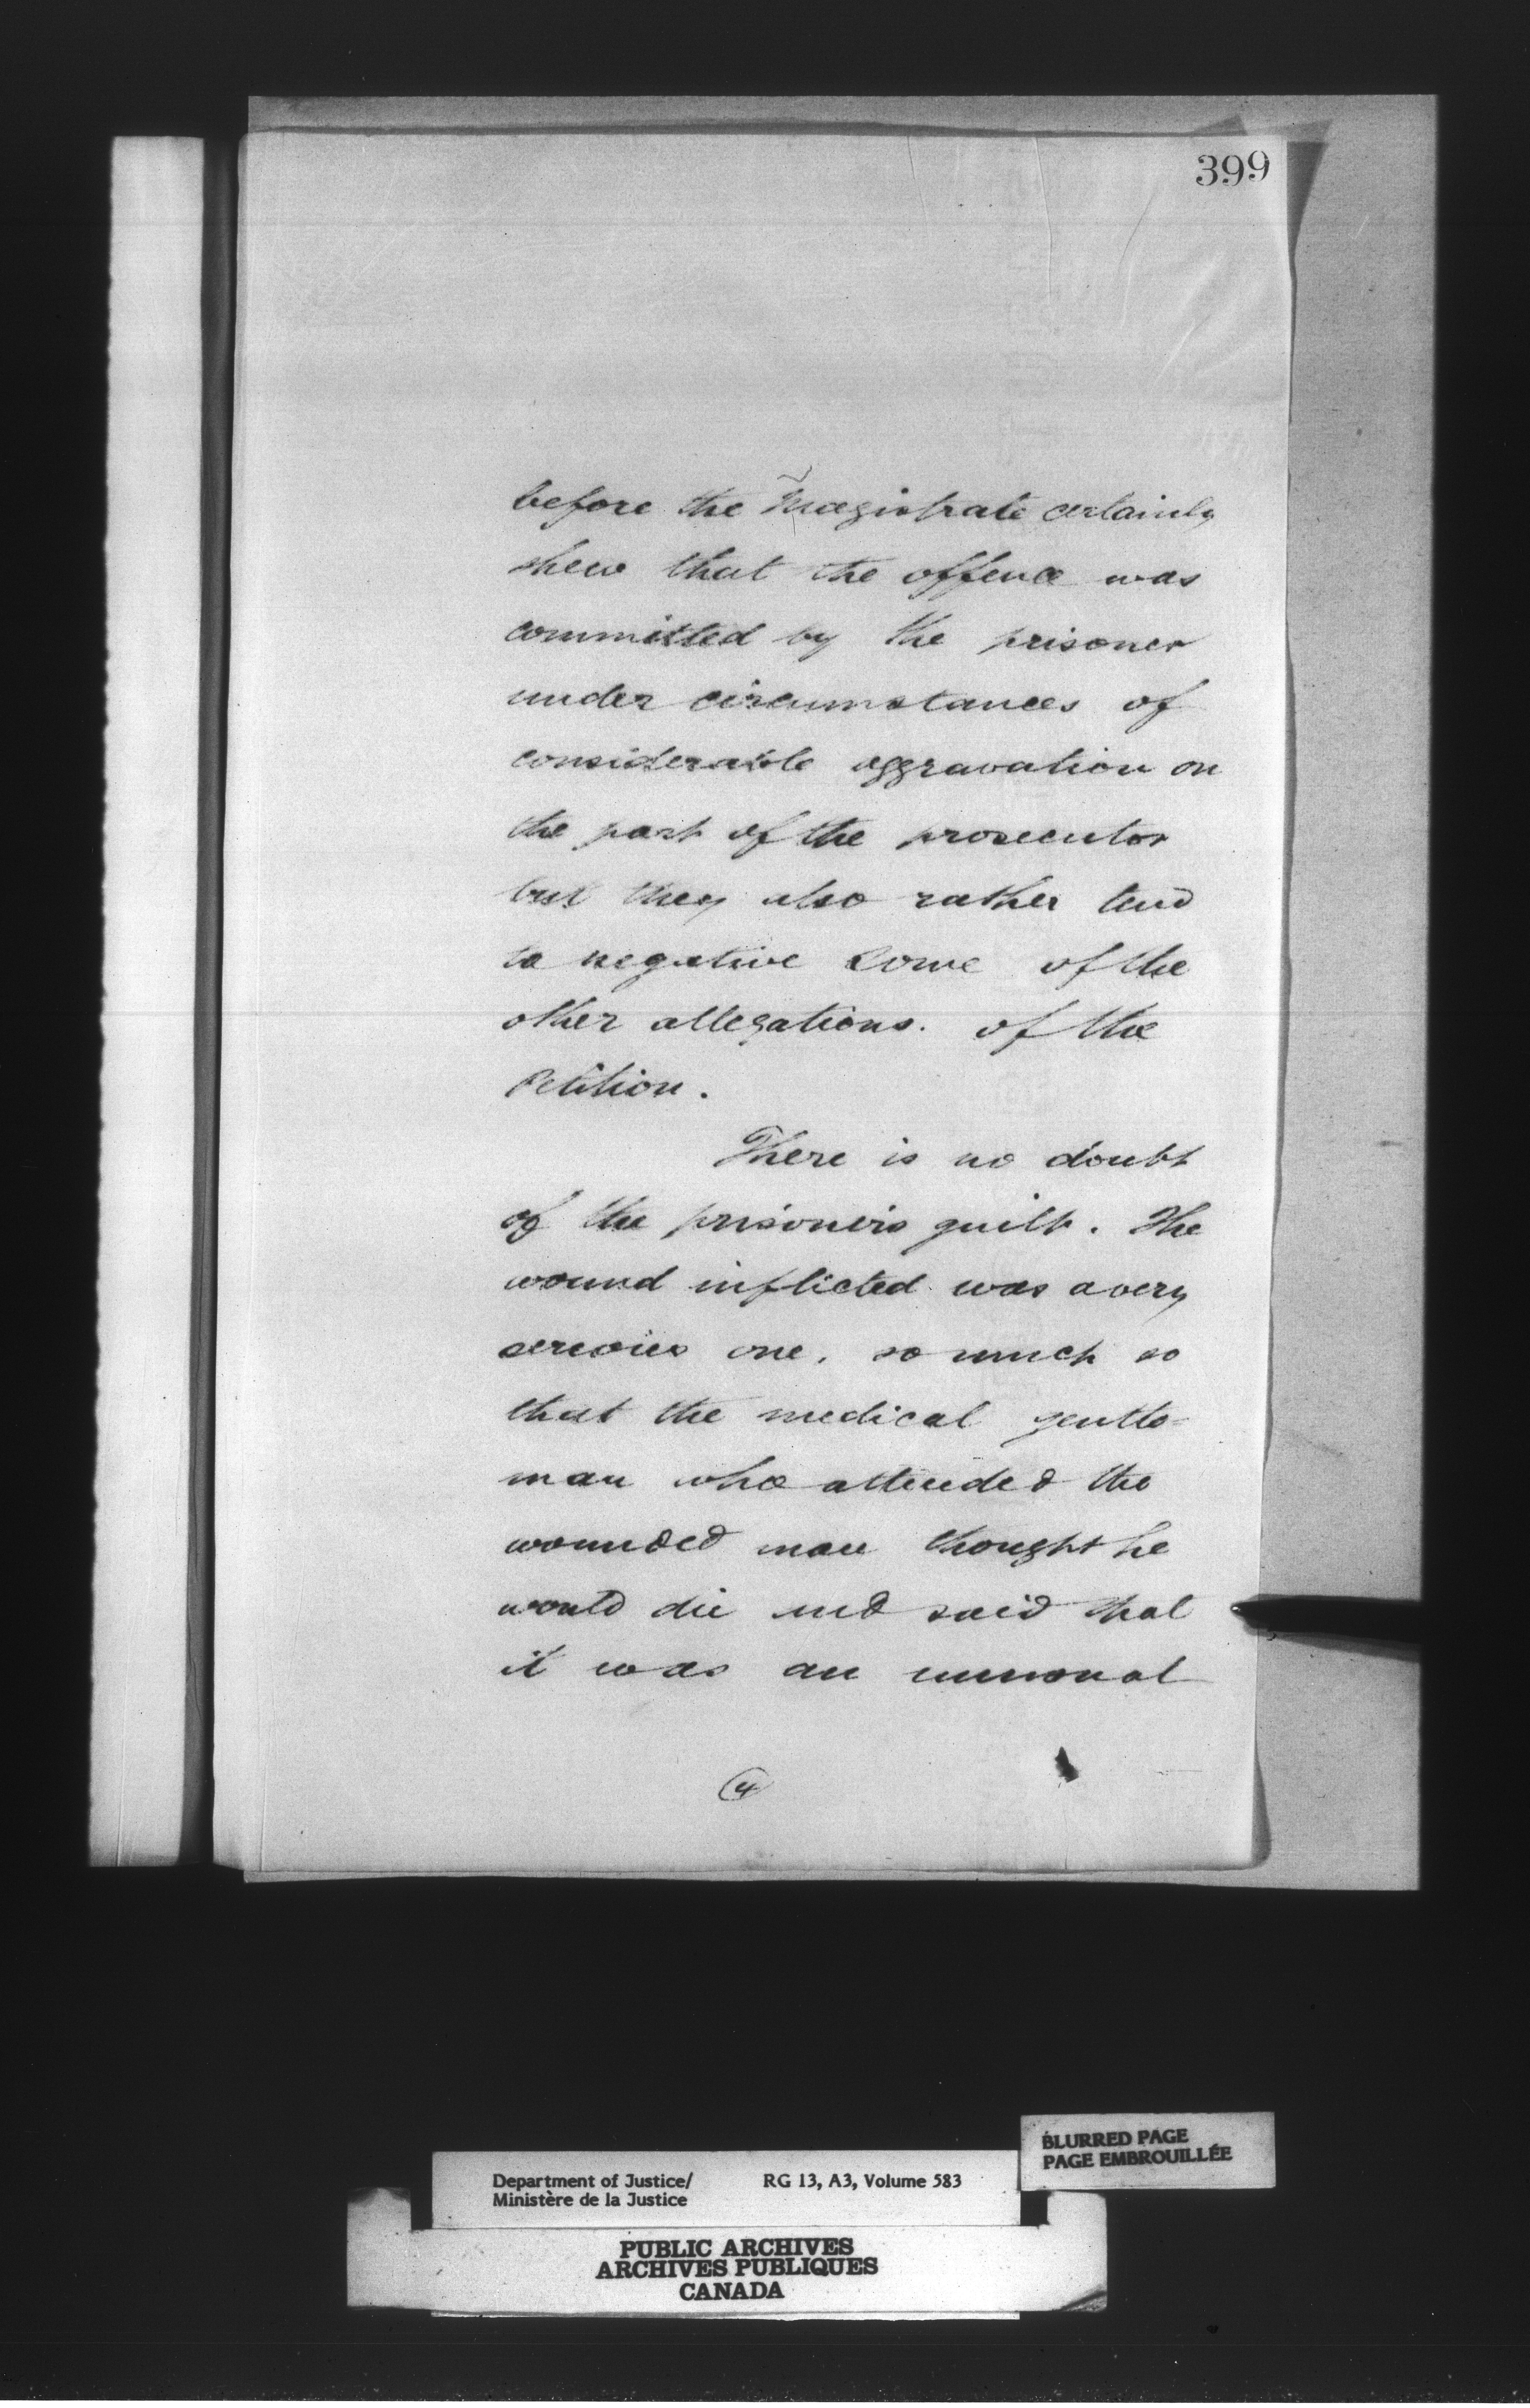 399
before the Magistrate certainly
shew that the offence was
committed by the prisoner
under circumstances of
considerable aggravation on
the part of the prosecutor
but they also rather tend
to negative some of the
other allegations. of the
Petition.
There is no doubt
of the prisoner's guilt. The
wound inflicted was a very
serious one, so much so
that the medical gentle-
man who attended the
wounded man thought he
would die and said that
it was an unusual
4
BLURRED PAGE
PAGE EMBROUILLÉE
Department of Justice/ RG 13, A3, Volume 583
Ministère de la Justice
PUBLIC ARCHIVES
ARCHIVES PUBLIQUES
CANADA